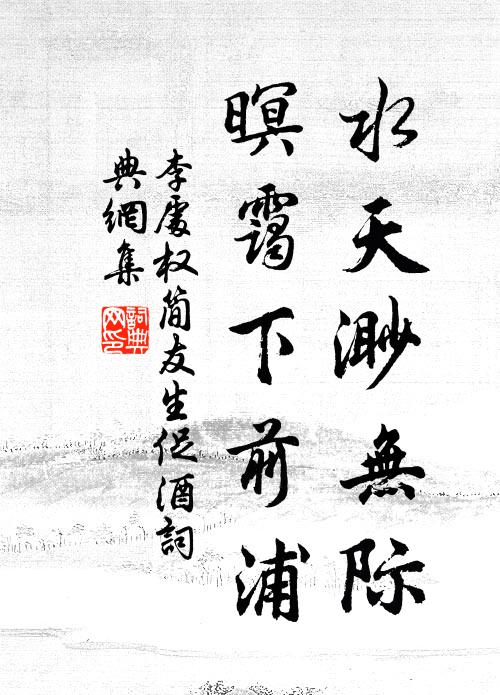 水天渺無际
暝靄下前浦
李處权简友生促酒詞
典網集
詞典网印